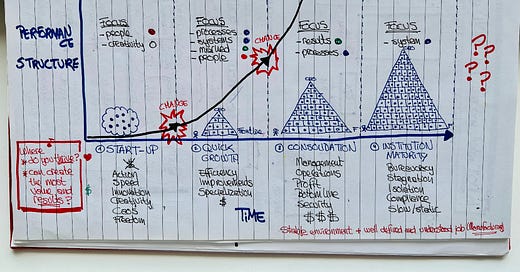 PERFORMAN
CE
STRUCTURE
FOCUS
- people
- creativity
FOCUS
- processes
- systems
people
FOCUS
- results
- processes
FOCUS
- system
CHANGE
CHANGE
? ? ? ?
Where
* do you thrive?
* can create
the most
value and
results?
① START-UP
Action
Speed
Innovation
Creativity
Caos
Freedom
② QUICK
GROWTH
Efficiency
Improvements
Specialization
$
③ CONSOLIDATION
Management
Operations
Profit
Bottom line
Security
$ $ $
④ INSTITUTION
MATURITY
Bureaucracy
Stagnation
Isolation
Compliance
Slow/static
TIME
Stable environment + well defined and understood job (Manufacturing)